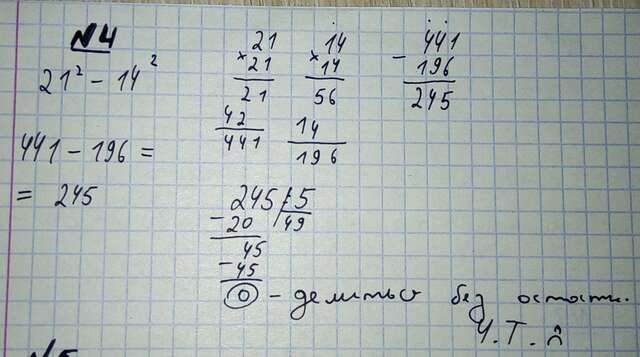 №4
21² - 14²
441 - 196 =
= 245
21
× 21
21
42
441
14
× 14
56
14
196
- 441
196
245
245 5
- 20 49
45
- 45
0 - делиться без остатк.
Ч.Т.Д
№5